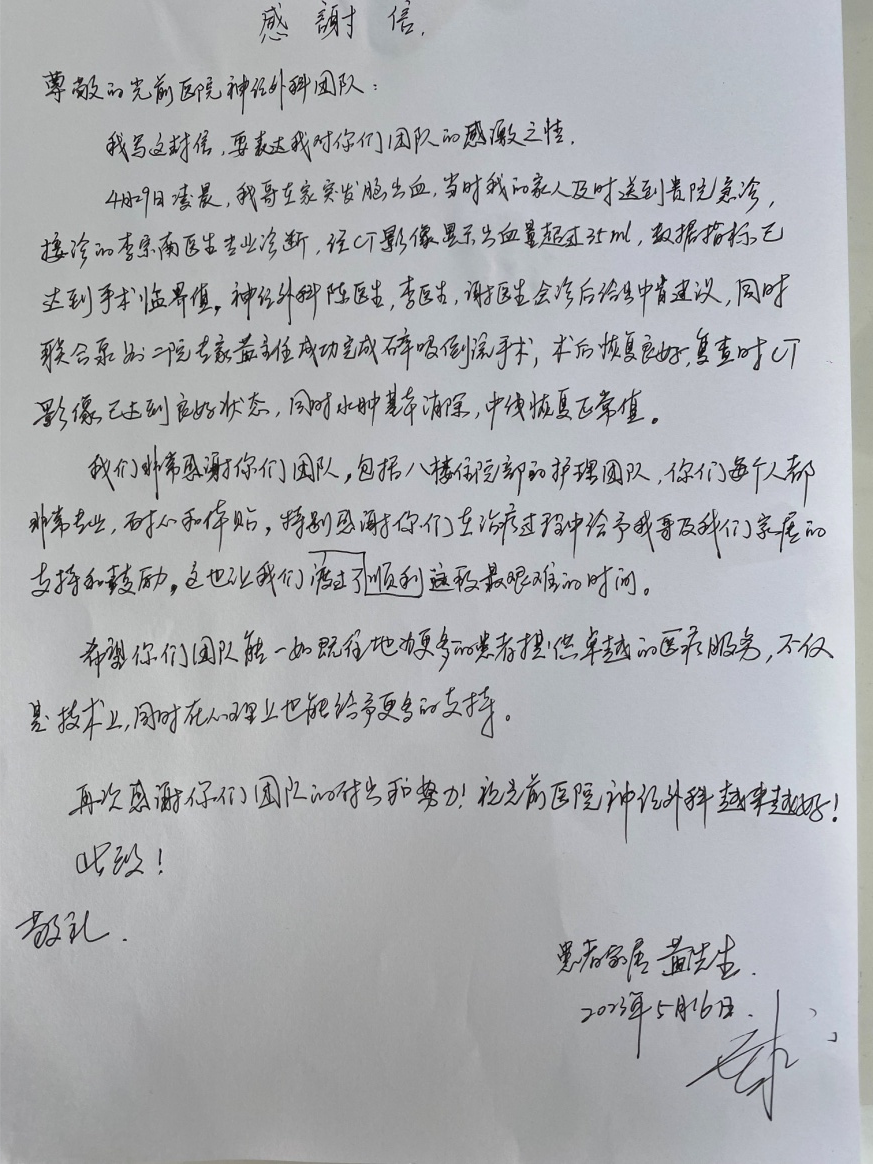 感謝信.
尊敬的光前医院神经外科团队：
我写这封信，要表达我对你们团队的感激之情.
4月29日凌晨，我哥在家突发脑出血，当时我的家人及时送到贵院急诊，
接诊的李宗南医生专业诊断，经CT影像显示出血量超过35ml，数据指标已
达到手术临界值。神经外科陈医生，李医生，谢医生会诊后给出中肯建议，同时
联合泉州二院专家黄主任成功完成碎吸引流手术，术后恢复良好，复查时CT
影像已达到良好状态，同时水肿基本消除，中线恢复正常值。
我们非常感谢你们团队，包括八楼住院部的护理团队，你们每个人都
非常专业，耐心和体贴，特别感谢你们在治疗过程中给予我哥及我们家属的
支持和鼓励，这也让我们渡过了顺利这段最艰难的时间。
希望你们团队能一如既往地为更多的患者提供卓越的医疗服务，不仅
是技术上，同时在心理上也能给予更多的支持。
再次感谢你们团队的付出和努力！祝光前医院神经外科越来越好！
此致！
敬礼.
患者家属 黄先生.
2023年5月16日.